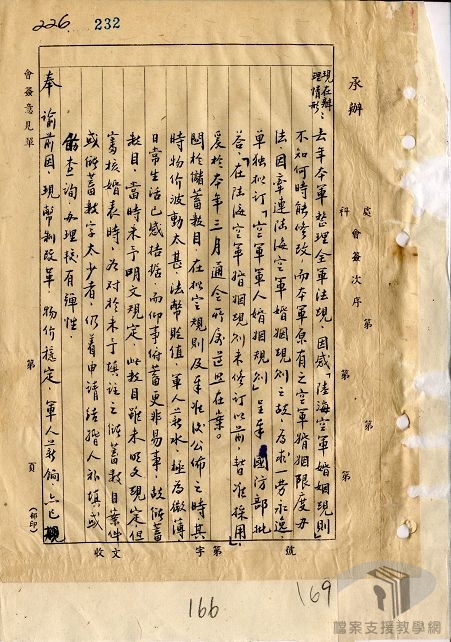 226
232
承辦
處
科
會簽次序
第
第
第
現在辦
理情形：
去年本軍整理全軍法規，因感「陸海空軍婚姻規則」
不知何時能修改，而本軍原有之空軍婚姻限度辦
法因牽連陸海空軍婚姻規則之故，為求一勞永逸，
單獨擬訂「空軍軍人婚姻規則」呈奉國防部批
答「在陸海空軍婚姻規則未修訂以前，暫准採用」
爰於本年三月通令所屬遵照在案。
關於儲蓄數目，在擬定規則及奉准公佈之時其
時物价波動太甚，法幣貶值，軍人薪水，極為微薄
日常生活已感拮据，而仰事俯蓄更非易事，故儲蓄
數目，當時未予明文規定，此數目雖未明文規定但
審核婚表時，為對於未予填註之儲蓄數目案件
或儲蓄數字太少者，仍着申請結婚人補填，或
飭查詢，辦理較有彈性。
奉諭前因，現幣制改革，物价穩定，軍人薪餉亦已
會簽意見單
第
頁
(印)
收文
字第
號
166
169
檔案支援教學網